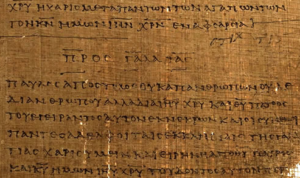 ΧΡΥ Η ΧΑΡΙϹ ΜΕΤΑ ΠΑΝΤΩΝ ΤΩΝ ΑΓΑΠΩΝΤΩΝ
ΤΟΝ ΚΝ ΗΜΩΝ ΙΗΝ ΧΡΝ ΕΝ ΑΦΘΑΡϹΙΑ
ΠΡΟϹ ΓΑΛΑΤΑϹ
ΠΑΥΛΟϹ ΑΠΟϹΤΟΛΟϹ ΟΥΚ ΑΠ ΑΝΘΡΩΠΩΝ ΟΥΔΕ
ΔΙ ΑΝΘΡΩΠΟΥ ΑΛΛΑ ΔΙΑ ΙΗΥ ΧΡΥ ΚΑΙ ΘΥ ΠΡΟϹ
ΤΟΥ ΕΓΕΙΡΑΝΤΟϹ ΑΥΤΟΝ ΕΚ ΝΕΚΡΩΝ ΚΑΙ ΟΙ ϹΥΝ
ΠΑΝΤΕϹ ΑΔΕΛΦΟΙ ΤΑΙϹ ΕΚΚΛΗϹΙΑΙϹ ΤΗϹ ΓΑΛΑ
ΤΙΑϹ ΧΑΡΙϹ ΥΜΙΝ ΚΑΙ ΕΙΡΗΝΗ ΑΠΟ ΘΥ ΠΑΤΡΟϹ
ΚΑΙ ΚΥ ΗΜΩΝ ΙΗΥ ΧΡΥ ΤΟΥ ΔΟΝΤΟϹ ΑΥΤΟΝ ΥΠΕΡ